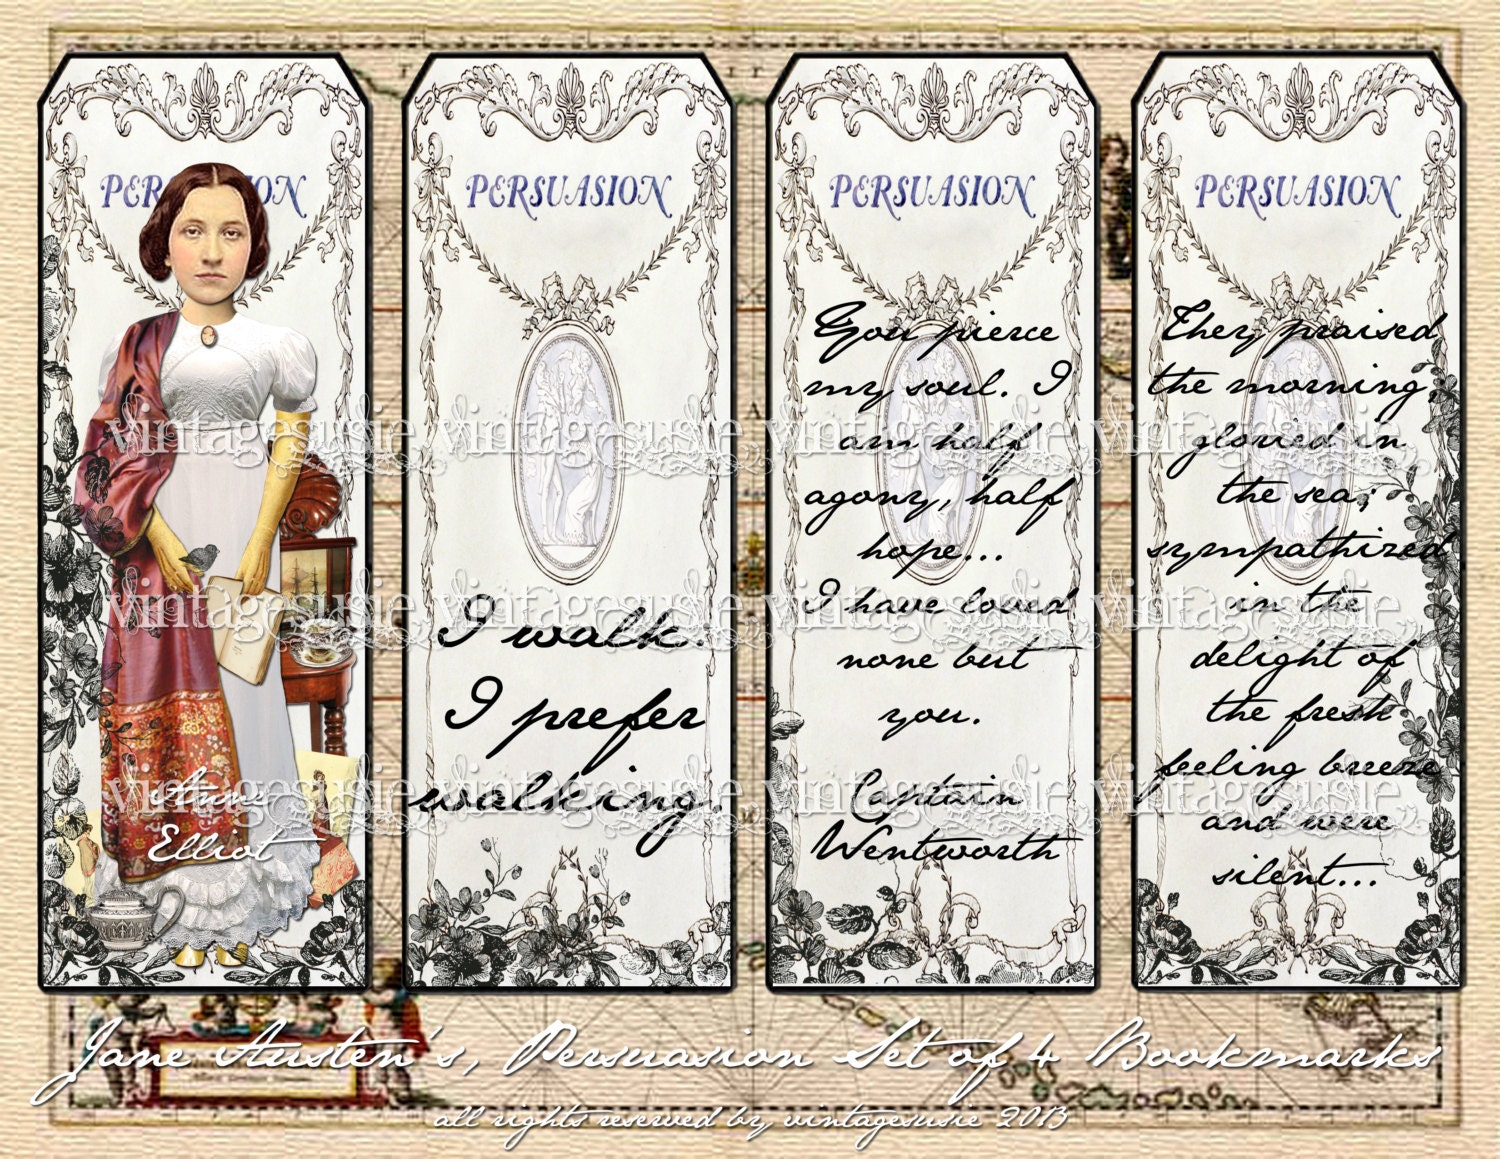 PERSUASION
Anne
Elliot
PERSUASION
I walk.
I prefer
walking.
PERSUASION
You pierce
my soul. I
am half
agony, half
hope...
I have loved
none but
you.
Captain
Wentworth
PERSUASION
They praised
the morning;
gloried in
the sea;
sympathized
in the
delight of
the fresh
feeling breeze
and were
silent...
vintagesusie vintagesusie vintagesusie vintagesusie
vintagesusie vintagesusie vintagesusie vintagesusie
vintagesusie vintagesusie vintagesusie vintagesusie
Jane Austen's, Persuasion Set of 4 Bookmarks
all rights reserved by vintagesusie 2013